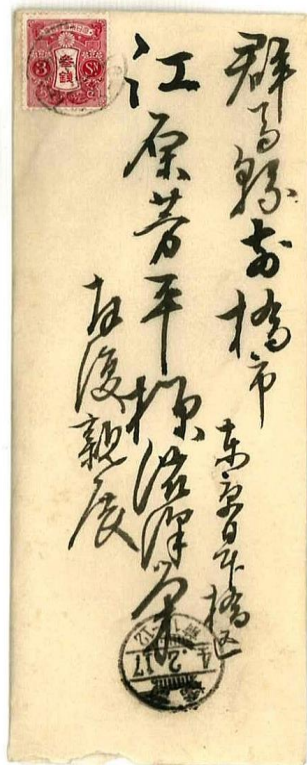 群馬縣前橋市
江原芳平様
拝復親展
東京日本橋区
渋澤栄一
参銭
3 Sn
4.2.17